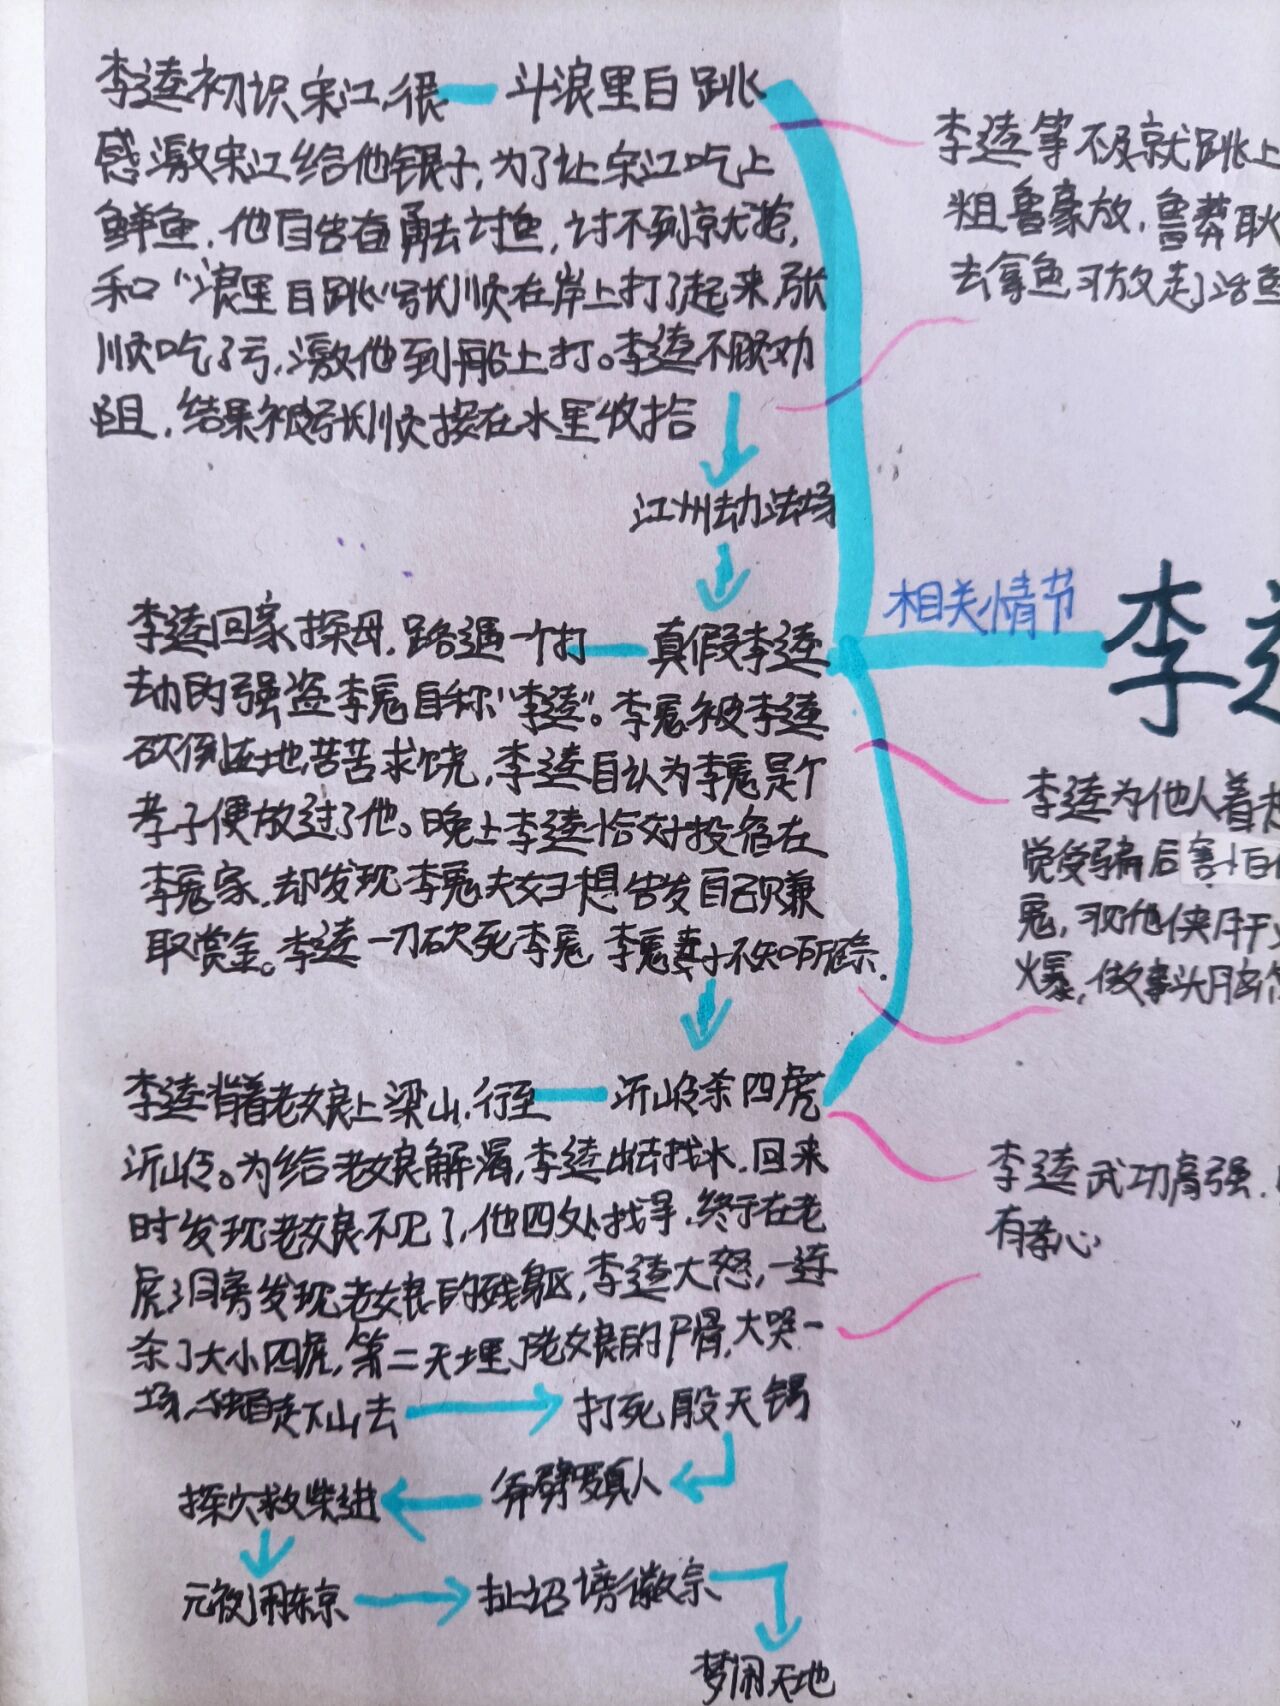 李逵初识宋江,很 斗浪里白跳
感激宋江给他银子,为了让宋江吃上
鲜鱼,他自告奋勇去讨鱼,讨不到就抢,
和“浪里白跳”张顺在岸上打了起来,张
顺吃了亏,激他到船上打。李逵不顾劝
阻,结果被张顺按在水里收拾
江州劫法场
李逵回家探母,路遇一个打 真假李逵
劫的强盗李鬼自称“李逵”。李鬼被李逵
砍倒在地,苦苦求饶,李逵自认为李鬼是个
孝子便放过了他。晚上李逵恰好投宿在
李鬼家,却发现李鬼夫妇想告发自己赚
取赏金。李逵一刀砍死李鬼,李鬼妻子不知所踪.
李逵背着老娘上梁山,行至 沂岭杀四虎
沂岭。为给老娘解渴,李逵出去找水,回来
时发现老娘不见了,他四处找寻,终于在老
虎洞旁发现老娘的残躯,李逵大怒,一连
杀了大小四虎,第二天埋了老娘的尸骨,大哭一
场,独自走下山去 打死殷天锡
斧劈罗真人
探穴救柴进
元夜闹东京 扯诏谤徽宗
梦闹天地
相关情节
李逵
李逵等不及就跳上
粗鲁豪放,鲁莽耿
去拿鱼,却放走了活鱼
李逵为他人着
觉受骗后
鬼,
爆,做事头脑简
李逵武功高强,
有孝心